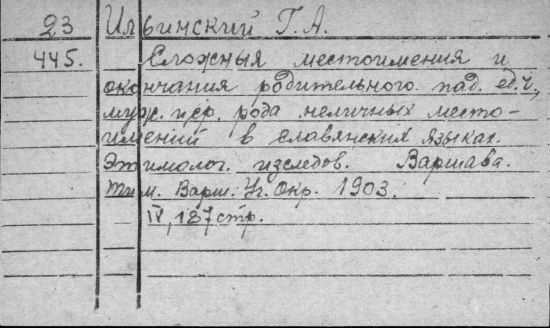 23 Ильинский Г. А.
445. Сложныя местоимения и
окончания родительного пад. ед. ч.,
муж. и ср. рода неличных место-
имений в славянских языках.
Этимолог. изследов. Варшава.
Тип. Варш. Уч. Окр. 1903.
IV, 187 стр.